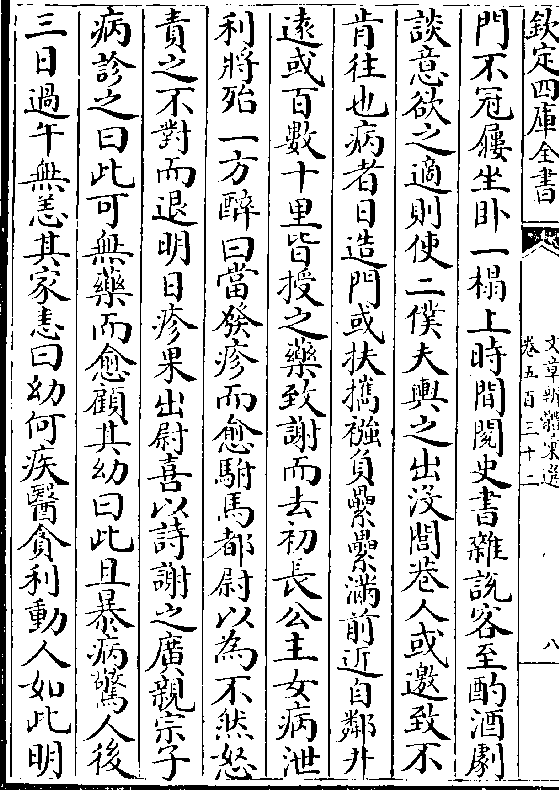 欽定四庫全書
文章辨體彙選
卷五百三十二
八
門不冠屨坐卧一榻上時間閱史書雜說客至酌酒劇
談意欲之適則使二僕夫輿之出沒閭巷人或邀致不
肯往也病者日造門或扶攜襁負纍纍滿前近自鄰井
遠或百數十里皆授之藥致謝而去初長公主女病泄
利將殆一方醉曰當發疹而愈駙馬都尉以為不然怒
責之不對而退明日疹果出尉喜以詩謝之廣親宗子
病診之曰此可無藥而愈顧其幼曰此且暴病驚人後
三日過午無恙其家恚曰幼何疾醫貪利動人如此明